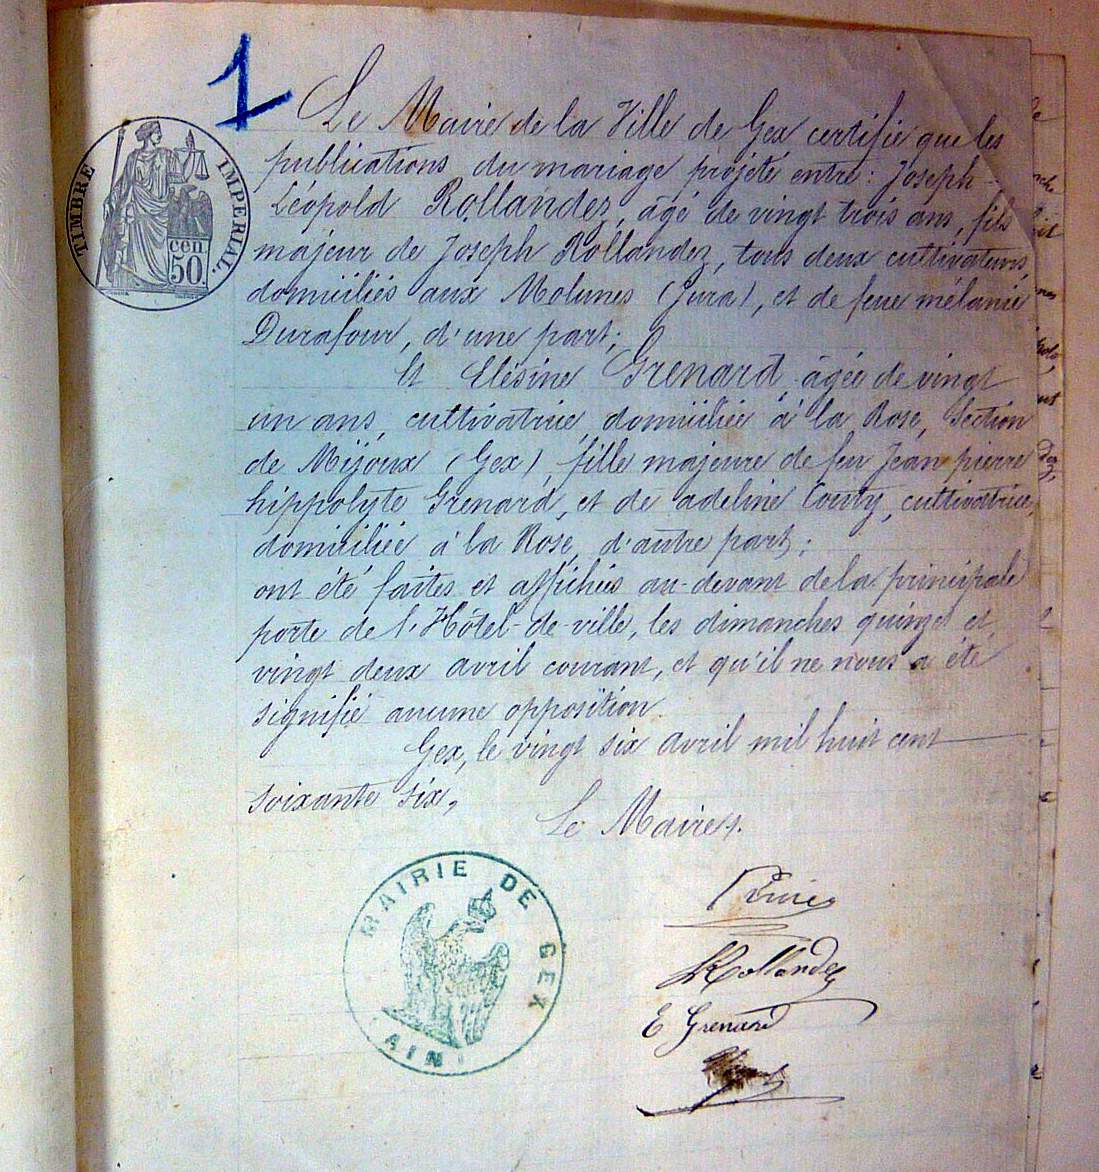 1
TIMBRE IMPERIAL.
cen
50.
Le Maire de la Ville de Gex certifie que les
publications du mariage projeté entre : Joseph-
Léopold Rollandez, âgé de vingt trois ans, fils
majeur de Joseph Rollandez, tous deux cultivateurs,
domiciliés aux Molunes (Jura), et de feue mélanie
Durafour, d'une part;
Et Elésine Grenard, âgée de vingt
un ans, cultivatrice, domiciliée à la Rose, Section
de Mijoux (Gex), fille majeure de feu Jean pierre
hippolyte Grenard, et de adeline Couty, cultivatrice,
domiciliée à la Rose, d'autre part;
ont été faites et affichées au-devant de la principale
porte de l'Hôtel-de-ville, les dimanches quinze et
vingt deux avril courant, et qu'il ne nous a été
signifié aucune opposition.
Gex, le vingt six avril mil huit cent
soixante six,
Le Maire,
MAIRIE DE GEX
(AIN)
Rollandez
E Grenard